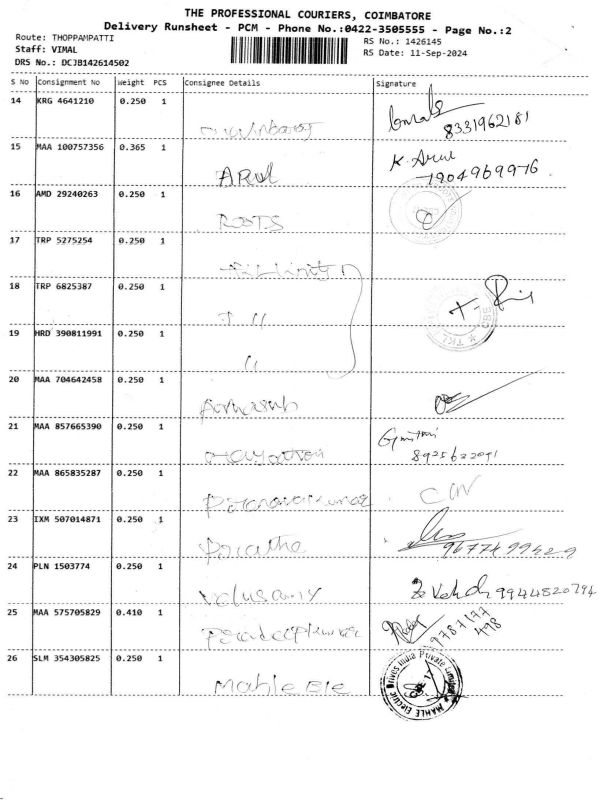 THE PROFESSIONAL COURIERS, COIMBATORE
Delivery Runsheet - PCM - Phone No.:0422-3505555 - Page No.:2
Route: THOPPAMPATTI
RS No.: 1426145
Staff: VIMAL
RS Date: 11-Sep-2024
DRS No.: DCJB142614502
S No Consignment No Weight PCS Consignee Details Signature
14 KRG 4641210 0.250 1
8331962181
15 MAA 100757356 0.365 1 ARUL K. Arul
7904969976
16 AMD 29240263 0.250 1 ROOTS
17 TRP 5275254 0.250 1
18 TRP 6825387 0.250 1 "
19 HRD 390811991 0.250 1 "
20 MAA 704642458 0.250 1
21 MAA 857665390 0.250 1
22 MAA 865835287 0.250 1
23 IXM 507014871 0.250 1
24 PLN 1503774 0.250 1 Velusamy 9944820794
25 MAA 575705829 0.410 1 Pradeepkumar
9787177
498
26 SLM 354305825 0.250 1 Mahle Ele
MAHLE Electric Drives India Private Limited